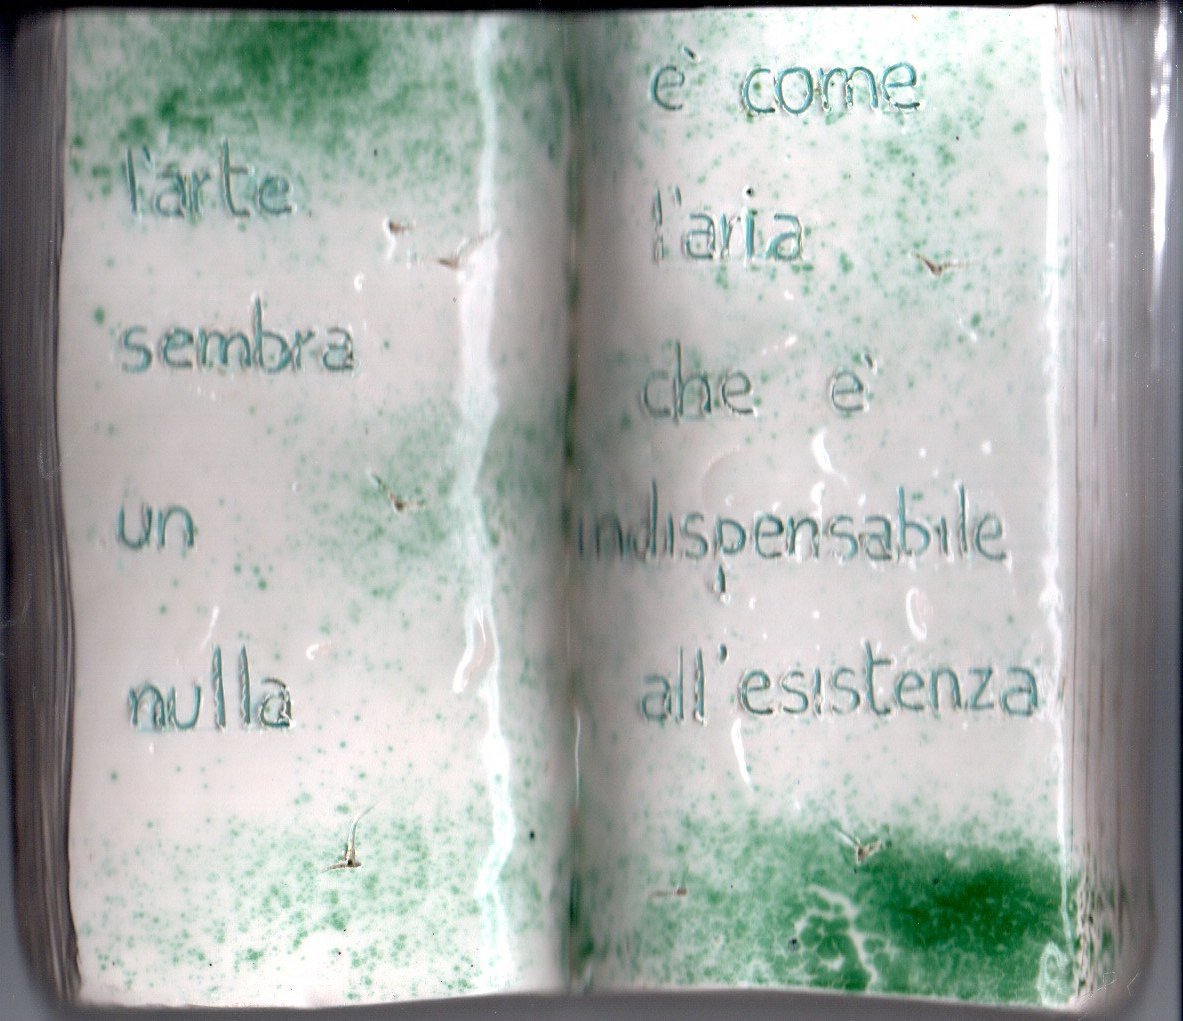 l'arte
sembra
un
nulla
e' come
l'aria
che e'
indispensabile
all'esistenza